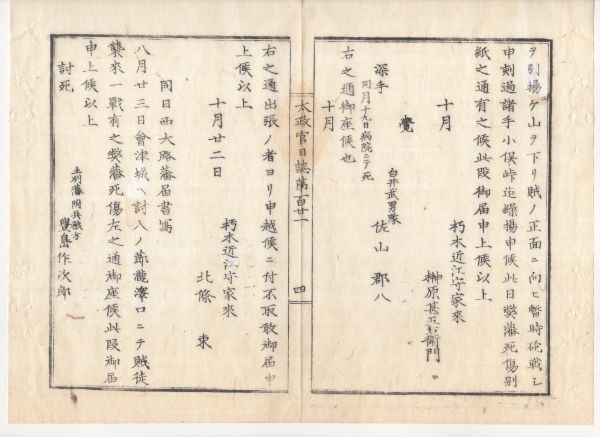 ヲ引揚ケ山ヲ下リ賊ノ正面ニ向ヒ暫時砲戰シ
申刻過諸手小俣峠迄繰揚申候此日弊藩死傷別
紙之通有之候此段御届申上候以上
朽木近江守家來
十月
榊原甚五右衛門
覺
白井武男隊
深手
佐山郡八
同月十九日病院ニテ死
右之通御座候也
十月
太政官日誌第百廿一
四
右之通出張ノ者ヨリ申越候ニ付不取敢御届申
上候以上
朽木近江守家來
十月廿二日
北條東
同日西大路藩届書寫
八月廿三日會津城ヘ討入ノ節瀧澤口ニテ賊徒
襲來一戰有之弊藩死傷左之通御座候此段御届
申上候以上
討死
作次郎